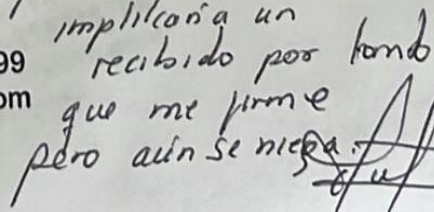 implicaría un
99 recibido por tanto
om que me firme
pero aún se niega.